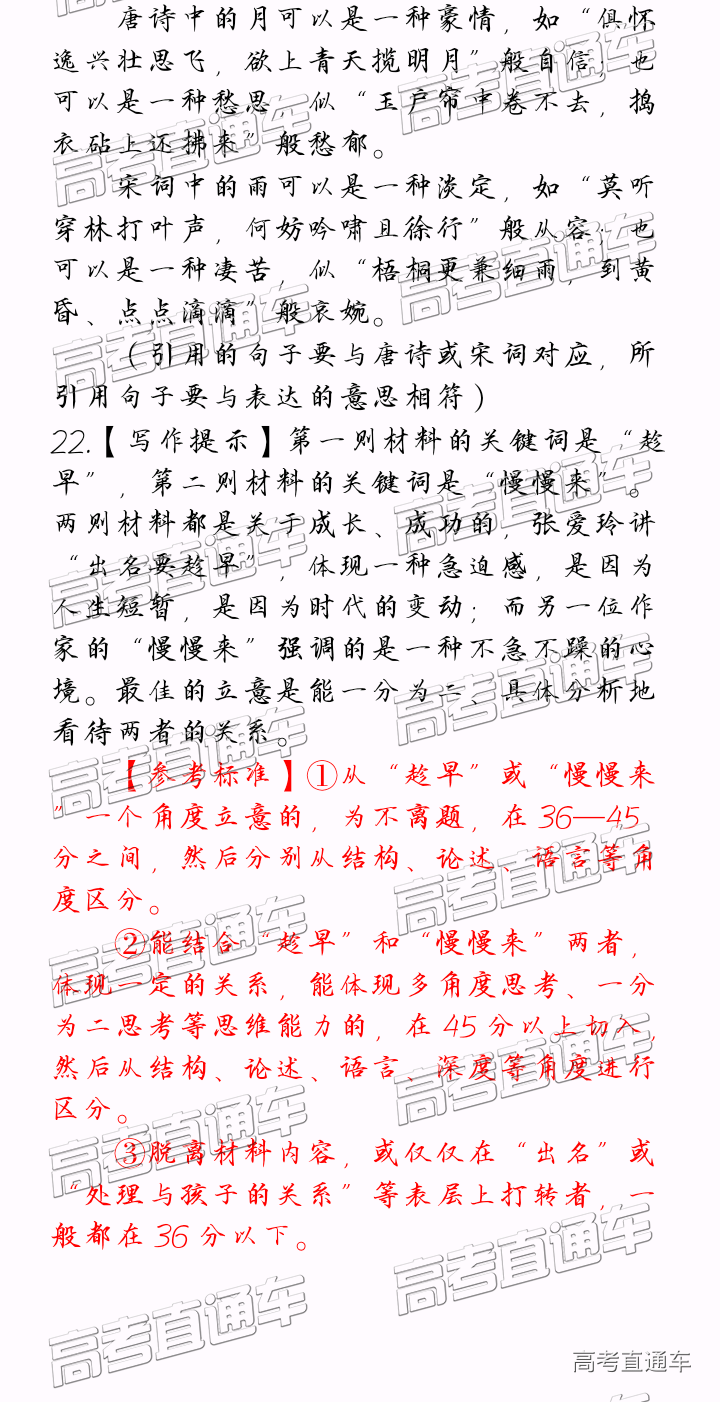 唐诗中的月可以是一种豪情，如“俱怀
逸兴壮思飞，欲上青天揽明月”般自信；也
可以是一种愁思，似“玉户帘中卷不去，捣
衣砧上还拂来”般愁郁。
宋词中的雨可以是一种淡定，如“莫听
穿林打叶声，何妨吟啸且徐行”般从容；也
可以是一种凄苦，似“梧桐更兼细雨，到黄
昏、点点滴滴”般哀婉。
（引用的句子要与唐诗或宋词对应，所
引用句子要与表达的意思相符）
22.【写作提示】第一则材料的关键词是“趁
早”，第二则材料的关键词是“慢慢来”。
两则材料都是关于成长、成功的，张爱玲讲
“出名要趁早”，体现一种急迫感，是因为
人生短暂，是因为时代的变动；而另一位作
家的“慢慢来”强调的是一种不急不躁的心
境。最佳的立意是能一分为二、具体分析地
看待两者的关系。
【参考标准】①从“趁早”或“慢慢来
”一个角度立意的，为不离题，在36—45
分之间，然后分别从结构、论述、语言等角
度区分。
②能结合“趁早”和“慢慢来”两者，
体现一定的关系，能体现多角度思考、一分
为二思考等思维能力的，在45分以上切入，
然后从结构、论述、语言、深度等角度进行
区分。
③脱离材料内容，或仅仅在“出名”或
“处理与孩子的关系”等表层上打转者，一
般都在36分以下。
高考直通车